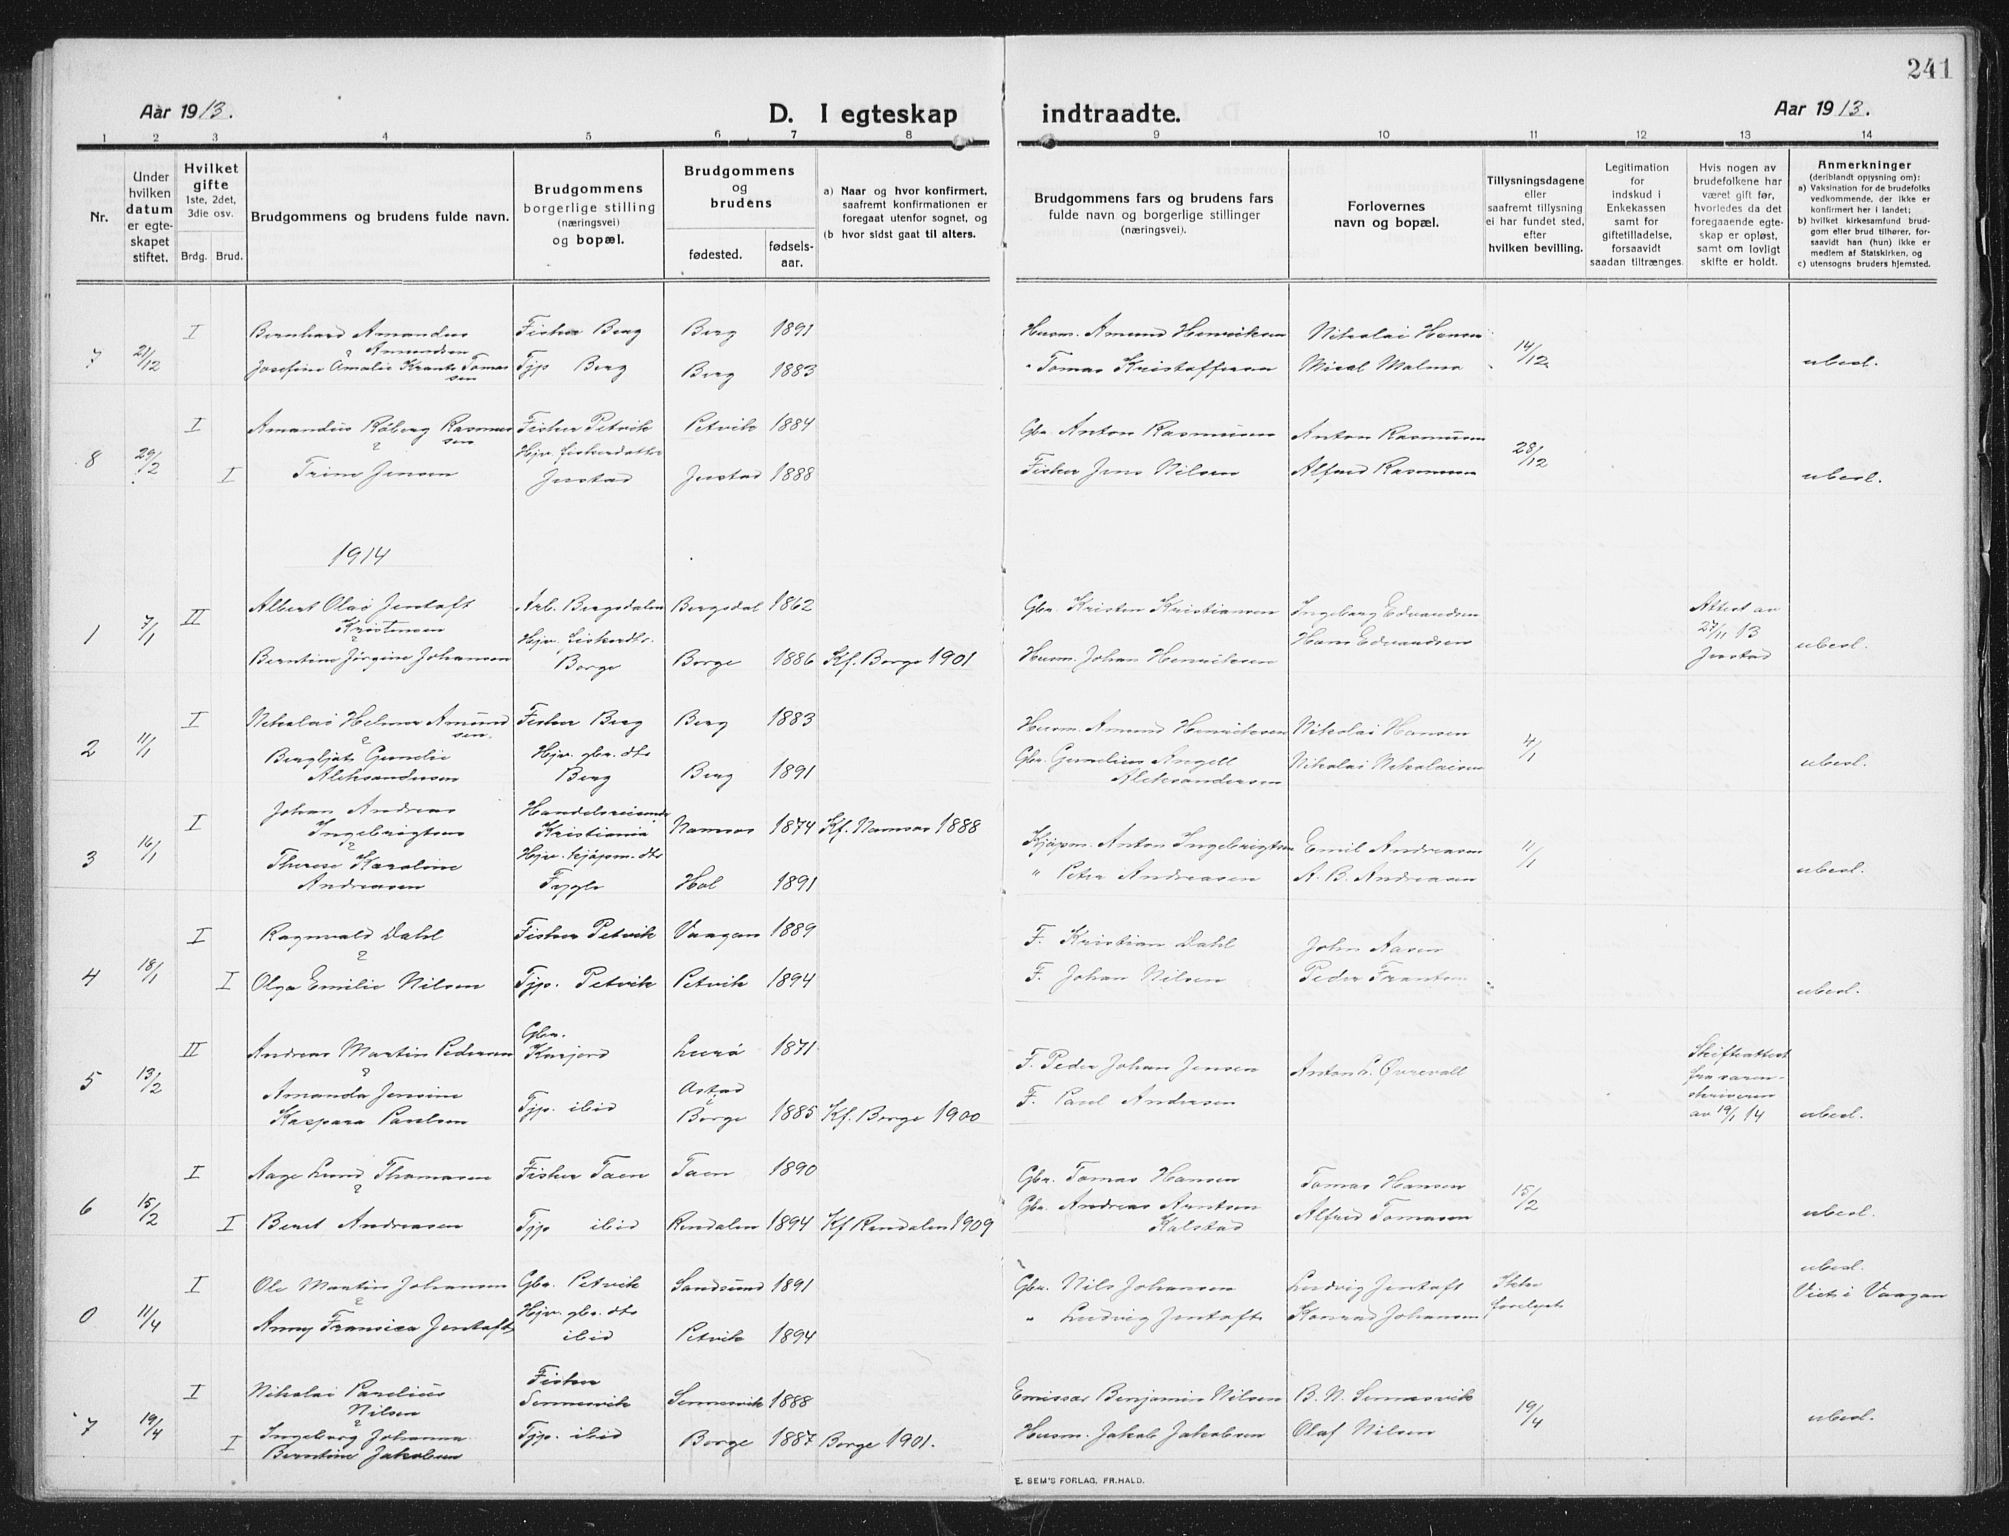 241
Aar 1913.
D. I egteskap indtraadte.
Aar 1913.
1 2 3 4 5 6 7 8 9 10 11 12 13 14
Nr.
Under hvilken datum er egteskapet stiftet.
Hvilket gifte 1ste, 2det, 3die osv.
Brdg. Brud.
Brudgommens og brudens fulde navn.
Brudgommens borgerlige stilling (næringsvei) og bopæl.
Brudgommens og brudens
fødested.
fødsels-aar.
a) Naar og hvor konfirmert, saafremt konfirmationen er foregaat utenfor sognet, og
(b hvor sidst gaat til alters.
Brudgommens fars og brudens fars fulde navn og borgerlige stillinger (næringsvei).
Forlovernes navn og bopæl.
Tillysningsdagene eller saafremt tillysning ei har fundet sted, efter hvilken bevilling.
Legitimation for indskud i Enkekassen samt for giftetilladelse, forsaavidt saadan tiltrænges.
Hvis nogen av brudefolkene har været gift før, hvorledes da det foregaaende egteskap er opløst, samt om lovligt skifte er holdt.
Anmerkninger (deriblandt oplysning om):
a) Vaksination for de brudefolks vedkommende, der ikke er konfirmert her i landet;
b) hvilket kirkesamfund brudgom eller brud tilhører, forsaavidt han (hun) ikke er medlem av Statskirken, og
c) utensogns bruders hjemsted.
7 21/12 I Bernhard Amandus Amundsen Fisker Berg Berg 1891 Husm. Amund Henriksen Nikolai Hansen 14/12
& Josefine Amalie Krantz Tomassen Tjp Berg Berg 1883 " Tomas Kristoffersen Mical Malmo ubesl.
8 29/12 I Amandus Röberg Rasmussen Fisker Petvik Petvik 1884 Gbr. Anton Rasmusen Anton Rasmusen 28/12
& I Trine Jensen Hjv. fiskerdatter Justad Justad 1888 Fisker Jens Nilsen Alfred Rasmusen ubesl.
1914
1 7/1 II Albert Olai Jentoft Kristensen Arb. Bergsdalen Bergsdal 1862 Gbr. Kristen Kristiansen Ingeborg Edvardsen Attest av 27/11 13 Justad
& Berntine Jørgine Johansen Hjv. fiskerdtr. Borge Borge 1886 Kf. Borge 1901 Husm. Johan Henriksen Hans Edvardsen ubesl.
2 11/1 I Nikolai Helmer Amundsen Fisker Berg Berg 1883 Husm. Amund Henriksen Nikolai Hansen 4/1
& Bergljot Gunelie Aleksandersen Hjv. gbr. dtr Berg Berg 1891 Gbr. Gunelius Angell Aleksandersen Nikolai Nikolaisen ubesl.
3 16/1 I Johan Andreas Ingebrigtsen Handelsreisende Kristiania Namsos 1874 Kf. Namsos 1888 Kjøpm. Anton Ingebrigtsen Emil Andreasen 11/1
& Therese Karoline Andreasen Hjv. kjøpm. dtr Fygle Hol 1891 " Peter Andreasen A. B. Andreasen ubesl.
4 18/1 I Ragnvald Dahl Fisker Petvik Vaagan 1889 F. Kristian Dahl John Aasen
& I Olga Emilie Nilsen Tjp. Petvik Petvik 1894 F. Johan Nilsen Peder Frantsen ubesl.
5 13/2 II Andreas Martin Pedersen Gbr. Lurö 1871 F. Peder Johan Jensen Anton L. Øvrevoll Skifteattest fra sorenskriveren av 19/1 14
& Amanda Jensine Kaspara Paulsen Tjp. ibid Borge 1885 Kf. Borge 1900 F. Paul Andersen ubesl.
6 15/2 I Aage Lund Thomasen Fisker Taen Taen 1890 Gbr. Tomas Hansen Tomas Hansen 15/2
& I Beret Andreasen Tjp ibid Rendalen 1894 Kf Rendalen 1909 Gbr. Andreas Arntsen Kalstad Alfred Tomasen ubesl.
0 11/4 I Ole Martin Johansen Gbr. Petvik Sandsund 1891 Gbr. Nils Johansen Ludvig Jentoft Ikke forelyst ubesl.
& Anny Fransica Jentoft Hjv. gbr. dtr ibid Petvik 1894 " Ludvig Jentoft Konrad Johansen Viet i Vaagan
7 19/4 I Nikolai Paulius Nilsen Fisker Sennesvik Sennesvik 1888 Emissær Benjamin Nilsen B. N. Sennesvik 19/4
& I Ingeborg Johanna Berntine Jakobsen Tjp. ibid Borge 1887 Borge 1901. Husm. Jakob Jakobsen Olaf Nilsen ubesl.
E. SEM'S FORLAG. FR.HALD.